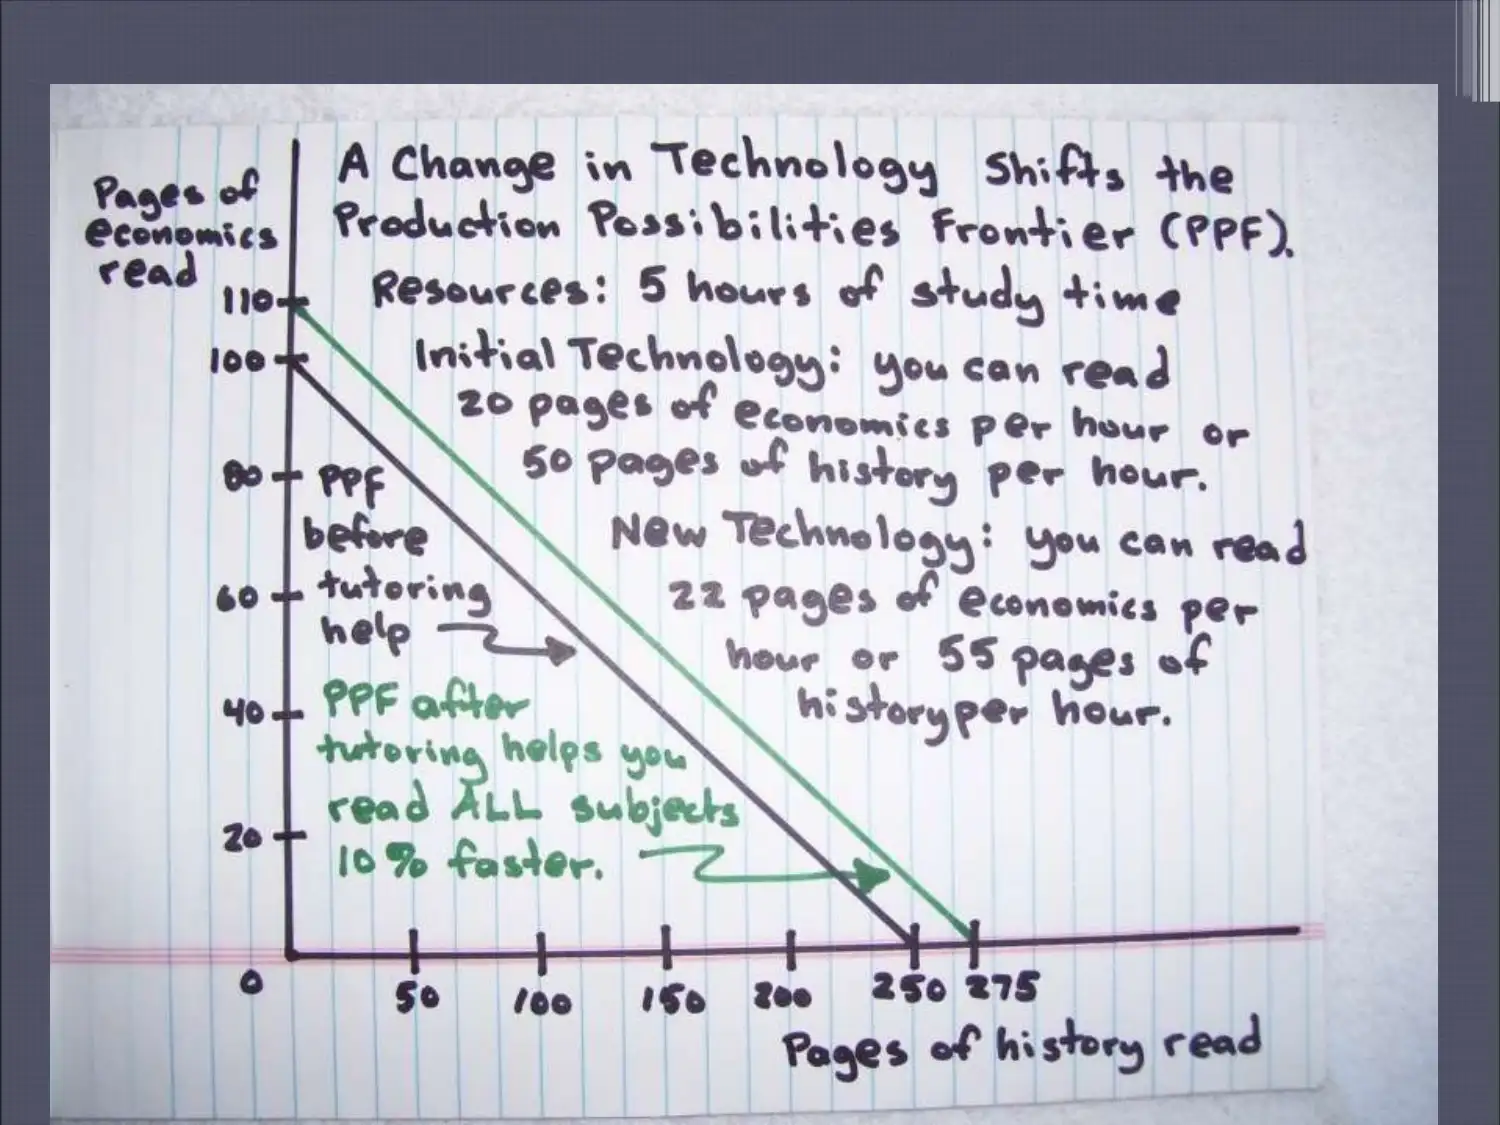 A Change in Technology Shifts the
Production Possibilities Frontier (PPF).
Pages of
economics
read
Resources: 5 hours of study time
Initial Technology: you can read
20 pages of economics per hour or
50 pages of history per hour.
New Technology: you can read
22 pages of economics per
hour or 55 pages of
history per hour.
110
100
80
60
40
20
0
PPF
before
tutoring
help
PPF after
tutoring helps you
read ALL subjects
10% faster.
50 100 150 200 250 275
Pages of history read